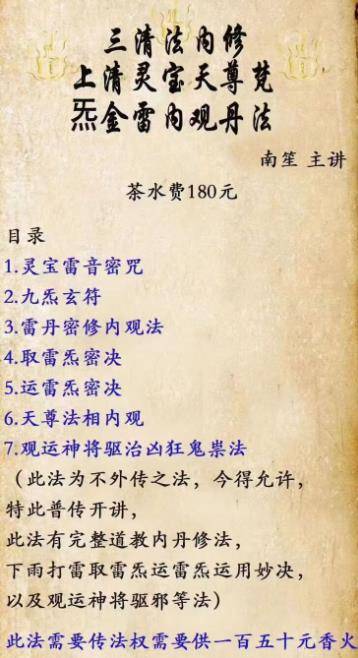 三清法内修
上清灵宝天尊梵
炁金雷内观丹法
南笙 主讲
茶水费180元
目录
1.灵宝雷音密咒
2.九炁玄符
3.雷丹密修内观法
4.取雷炁密决
5.运雷炁密决
6.天尊法相内观
7.观运神将驱治凶狂鬼祟法
（此法为不外传之法，今得允许，
特此普传开讲，
此法有完整道教内丹修法，
下雨打雷取雷炁运雷炁运用妙决，
以及观运神将驱邪等法）
此法需要传法权需要供一百五十元香火